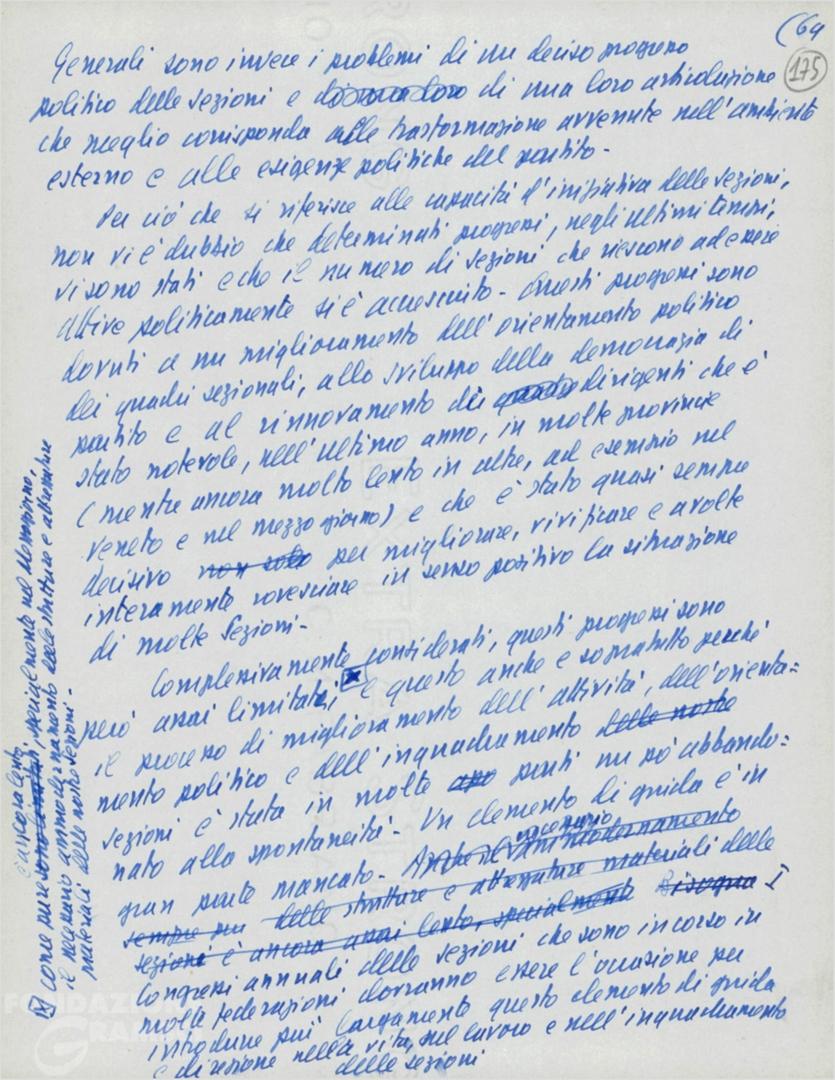 (64
175
Generali sono invece i problemi di un deciso progresso
politico delle sezioni e di una loro di una loro articolazione
che meglio corrisponda alle trasformazione avvenute nell'ambiente
esterno e alle esigenze politiche del partito -
Per ciò che si riferisce alle capacità d'iniziativa delle sezioni,
non vi è dubbio che determinati progressi, negli ultimi tempi,
vi sono stati e che il numero di sezioni che riescono ad essere
attive politicamente si è accresciuto - Questi progressi sono
dovuti a un miglioramento dell'orientamento politico
dei quadri sezionali, allo sviluppo della democrazia di
partito e al rinnovamento dei quadri dirigenti che è
stato notevole, nell'ultimo anno, in molte provincie
(mentre ancora molto lento in altre, ad esempio nel
veneto e nel mezzogiorno) e che è stato quasi sempre
decisivo non solo per migliorare, vivificare e a volte
interamente rovesciare in senso positivo la situazione
di molte sezioni -
Complessivamente considerati, questi progressi sono
però assai limitati, e questo anche e sopratutto perché
il processo di miglioramento dell'attività, dell'orienta=
mento politico e dell'inquadramento delle nostre
sezioni è stata in molte parti un po' abbando=
nato alla spontaneità - Un elemento di guida è in
gran parte mancato - Anche l'ammodernamento
necessario
sempre per delle strutture e attrezzature materiali delle
sezioni è ancora assai lento, specialmente Bisogna I
Congressi annuali delle sezioni che sono in corso in
molte federazioni dovranno essere l'occasione per
introdurre più largamente questo elemento di guida
e direzione nella vita, nel lavoro e nell'inquadramento
delle sezioni
è ancora lento,
x come pure, specialmente nel Mezzogiorno,
il necessario ammodernamento delle strutture e attrezzature
materiali delle nostre sezioni -
FONDAZIONE
GRAMSCI